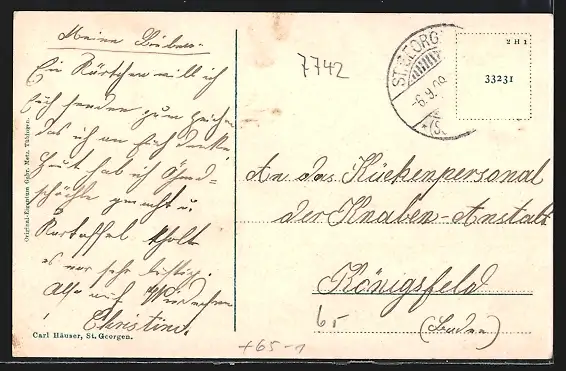 Meine Lieben.
Ein Kärtchen will ich
Euch senden zum Zeichen
das ich an Euch denke,
Heut hab ich
gemacht u.
Kartoffel
es war sehr lustig.
Also auf Wiedersehen
Christine.
Carl Häuser, St. Georgen.
Original-Eigentum Gebr. Metz, Tübingen.
7742
ST. GEORG
-6.9.09
2 H 1
33231
An das Küchenpersonal
der Knaben-Anstalt
Königsfeld
(Baden)
65
+65-1